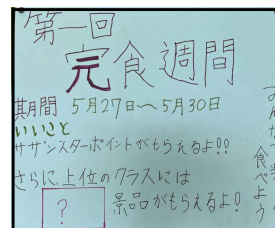 第一回
完食週間
期間 5月27日〜5月30日
いいこと
サザンスターポイントがもらえるよ!!
さらに、上位のクラスには
? 景品がもらえるよ!
食べよう